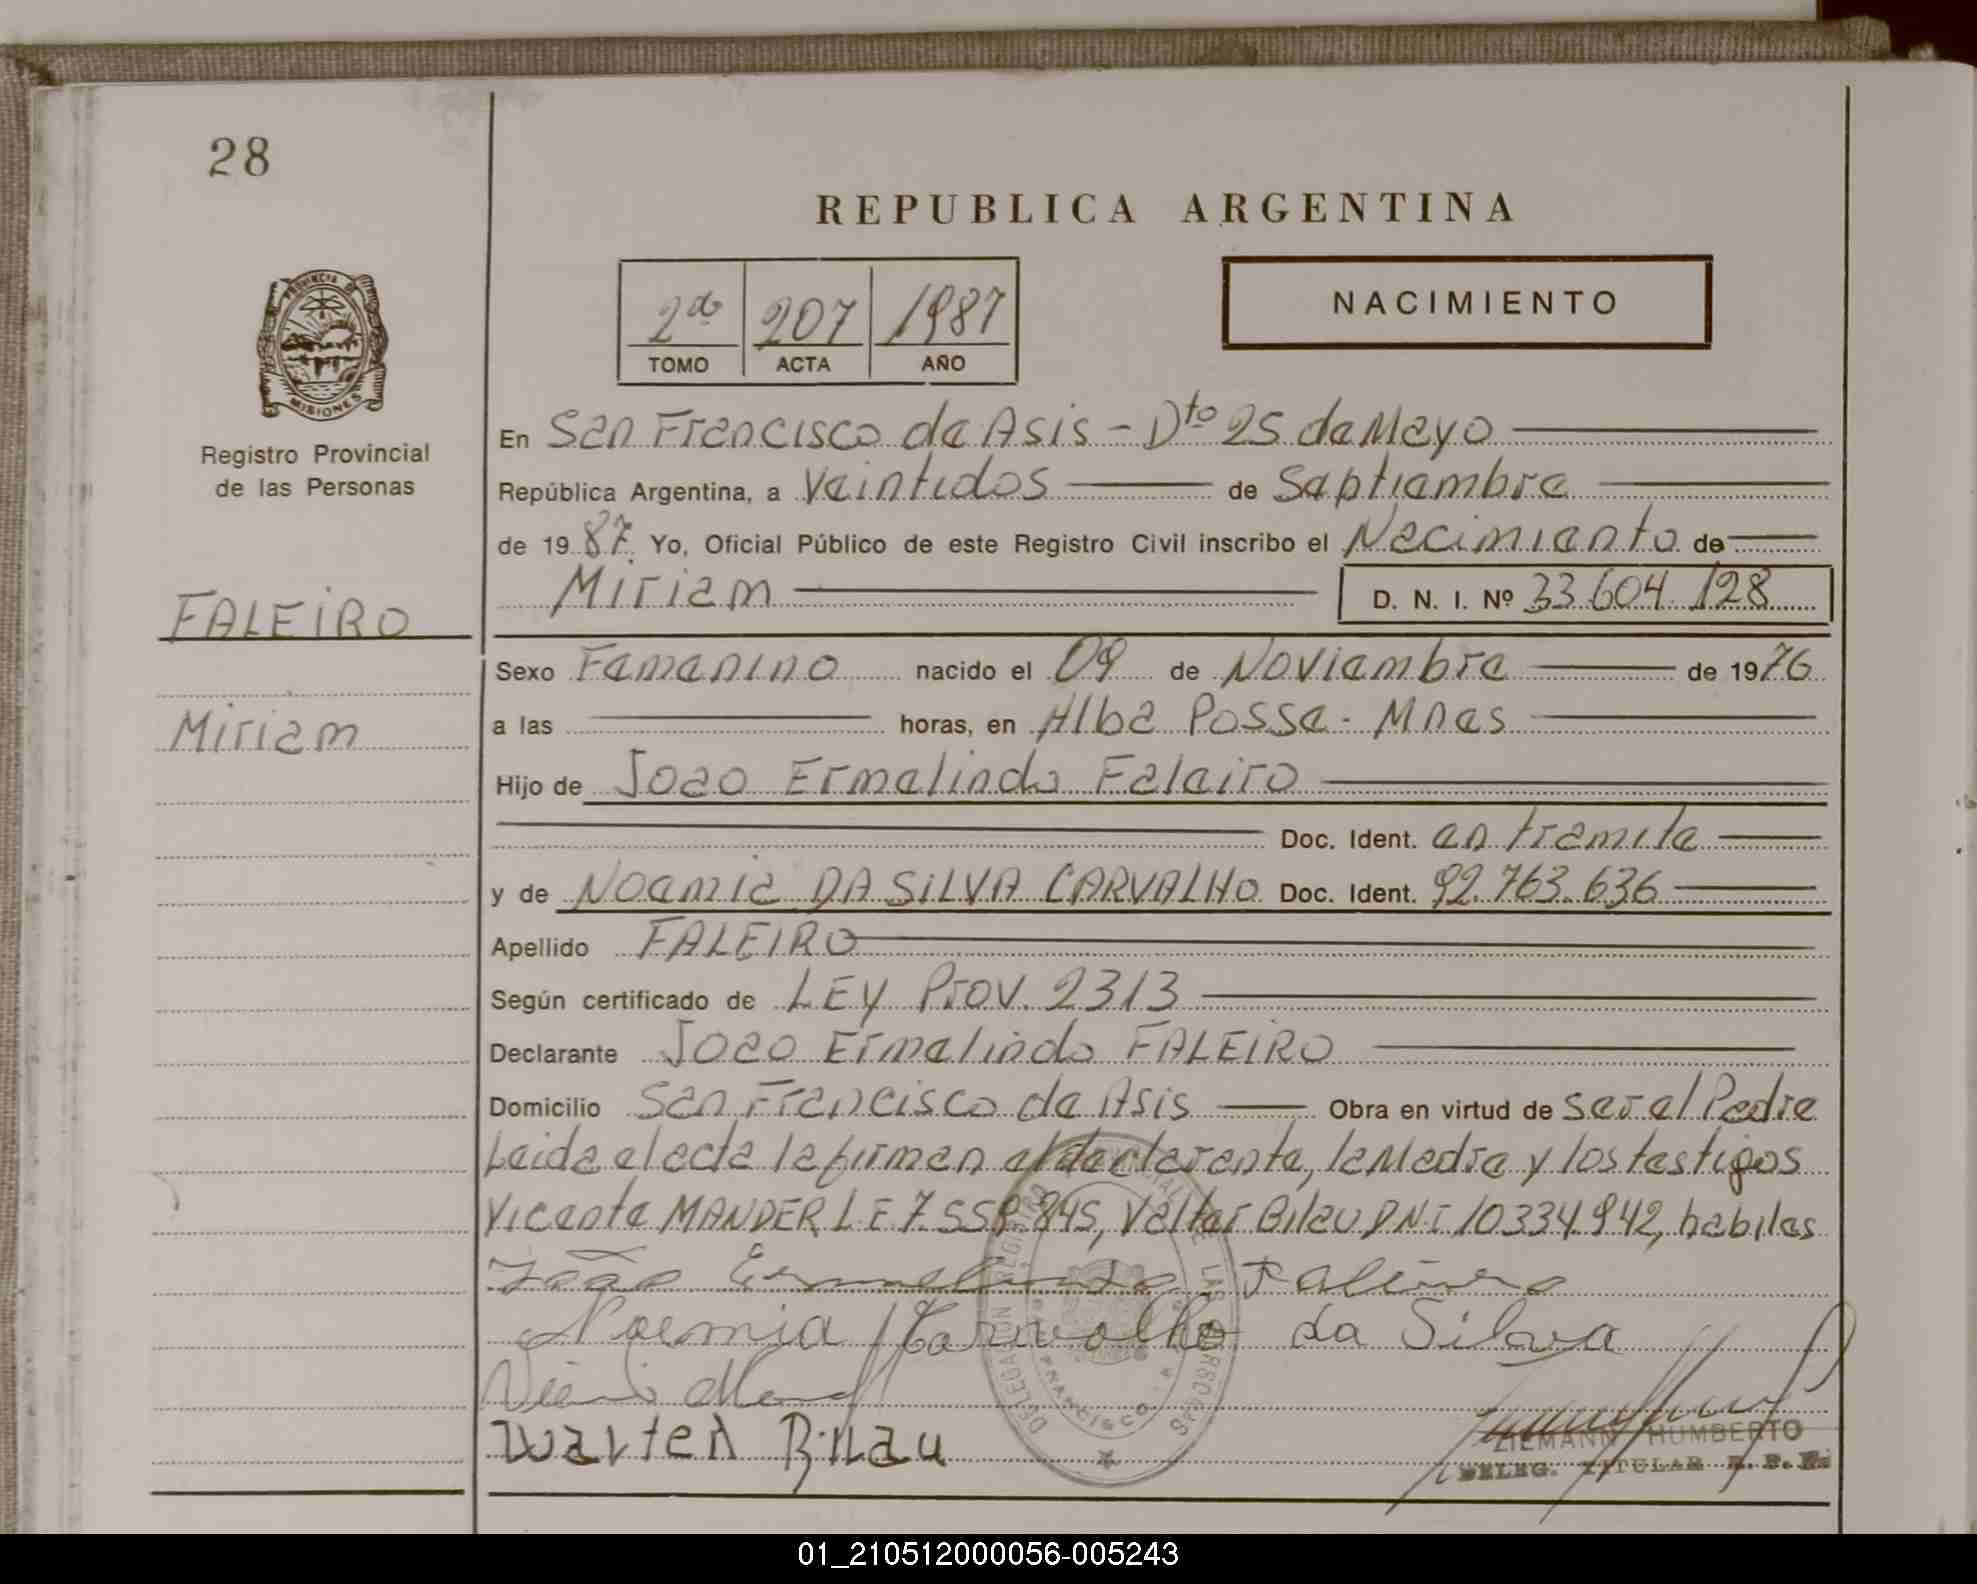 28
REPUBLICA ARGENTINA
2do 207 1987
TOMO ACTA AÑO
NACIMIENTO
PROVINCIA DE
MISIONES
Registro Provincial
de las Personas
En San Francisco de Asis - Dto 25 de Mayo
República Argentina, a Veintidos de Septiembre
de 1987. Yo, Oficial Público de este Registro Civil inscribo el Nacimiento de
Miriam D. N. I. Nº 33.604.128
FALEIRO
Miriam
Sexo Femenino nacido el 09 de Noviembre de 1976
a las horas, en Alba Posse - Mnes
Hijo de Joao Ermelindo Faleiro
Doc. Ident. en tramite
y de Noemia DA SILVA CARVALHO Doc. Ident. 92.763.636
Apellido FALEIRO
Según certificado de LEY Prov. 2313
Declarante Joao Ermelindo FALEIRO
Domicilio San Francisco de Asis Obra en virtud de ser el Padre
Leida el acta la firman el declarante, la Madre y los testigos
Vicente MANDER L.E 7.558.845, Valter Bilau D.N.I 10334.942, habiles
João Ermelindo Faleiro
Noemia Carvalho da Silva
Walter Bilau
ZIEMANN HUMBERTO
DELEG. TITULAR R. P. P.
01_210512000056-005243